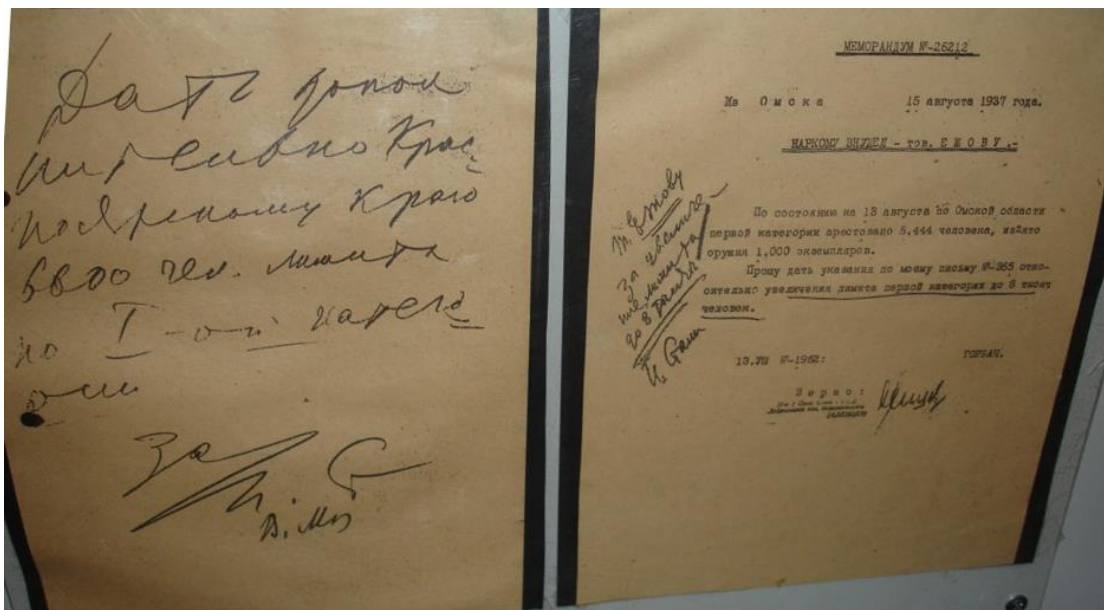 Дать допол
нительно Крас-
ноярскому краю
6600 чел. лимита
по I-ой катего
рии
За
И. С
В. Мо
МЕМОРАНДУМ №-26212
Из Омска 15 августа 1937 года.
НАРКОМУ ВНУДЕЛ - тов. ЕЖОВУ.-
По состоянию на 13 августа по Омской области
первой категории арестовано 5.444 человека, изъято
оружия 1.000 экземпляров.
Прошу дать указания по моему письму №-365 отно-
сительно увеличения лимита первой категории до 8 тысяч
человек.
т. Ежову
За увеличе-
ние лимита
до 8 тысяч
И Сталин
13.VIII №-1962: ГОРБАЧ.
Верно: